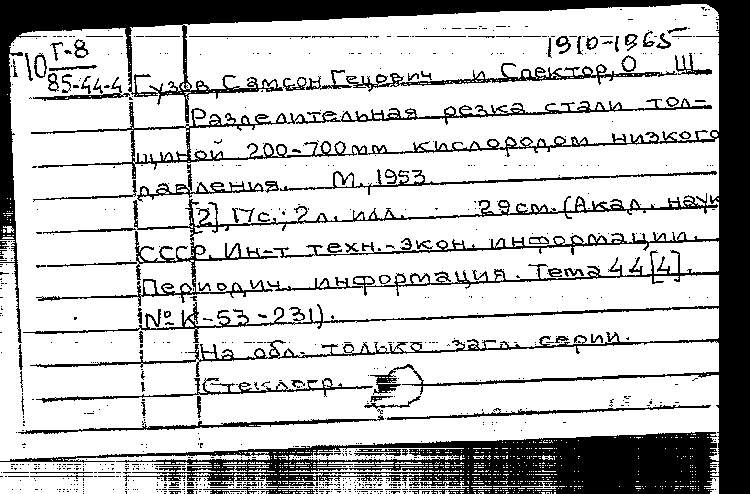 1910-1965
ПО Г-8
85-44-4 Гузов, Самсон Гецович и Спектор, О Ш
Разделительная резка стали тол-
щиной 200-700мм кислородом низкого
давления. М., 1953
[2], 17с.; 2л. илл. 29см. (Акад. наук
СССР. Ин-т техн.-экон. информации.
Периодич. информация. Тема 44[4].
№ К-53-231).
На обл. только загл. серии.
Стеклогр.